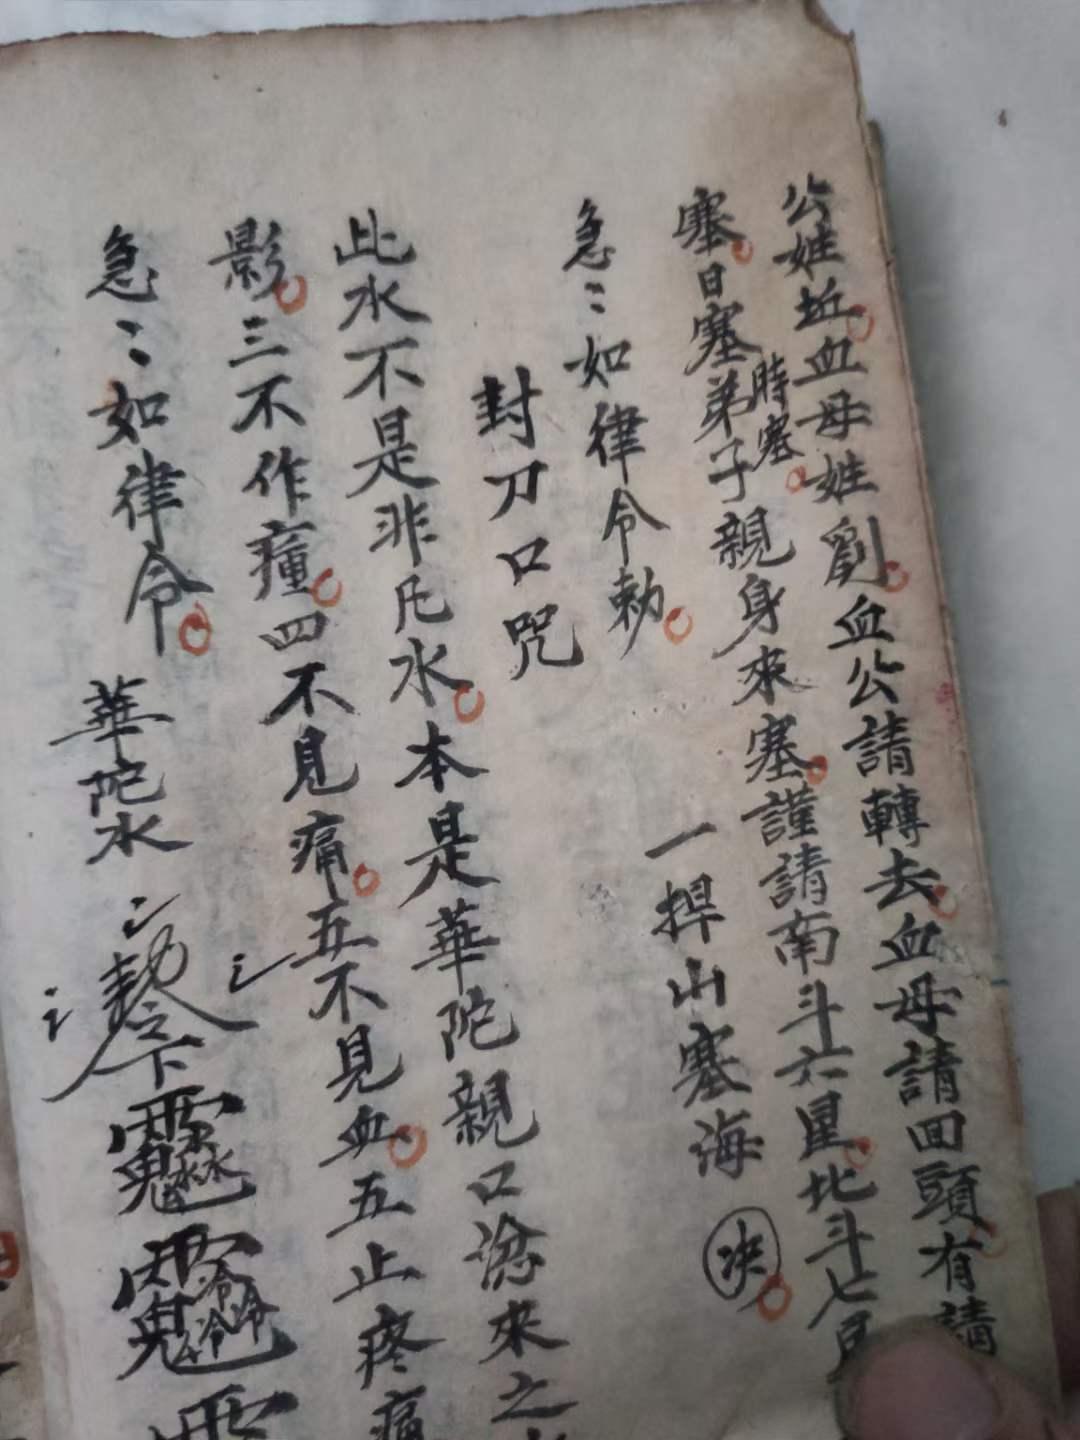 公姓丘血母姓劉血公請轉去血母請回頭有請
塞日塞時塞弟子親身來塞謹請南斗六星北斗七星
急〻如律令勅　一捍山塞海　决
封刀口咒
此水不是非凡水本是華陀親口來之
影三不作瘴四不見痛五不見血五止疼痛
急〻如律令　華陀水
勅令下